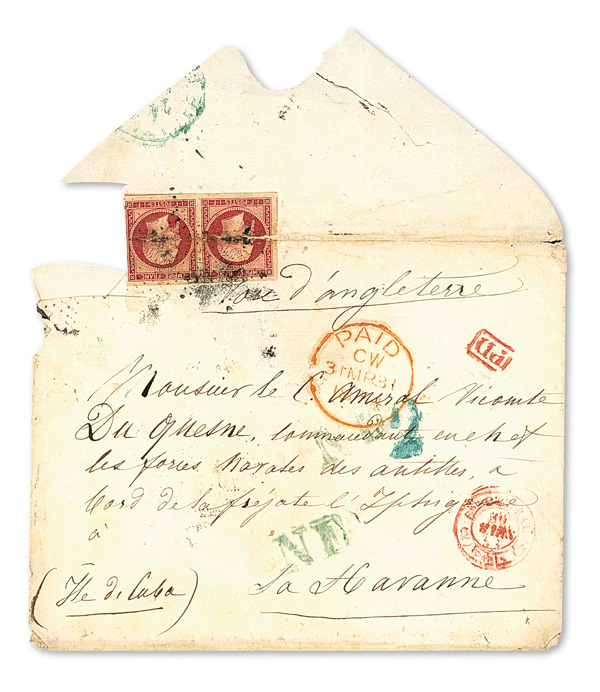 Voie d'angleterre
PAID
CW
31 MR 31
PD
Monsieur le C. Amiral Vicomte
Du Quesne, Commandant en chef
les forces Navales des antilles, a
bord de la frégate l'Iphigénie
à
2
ND
(Île de Cuba)
La Havanne